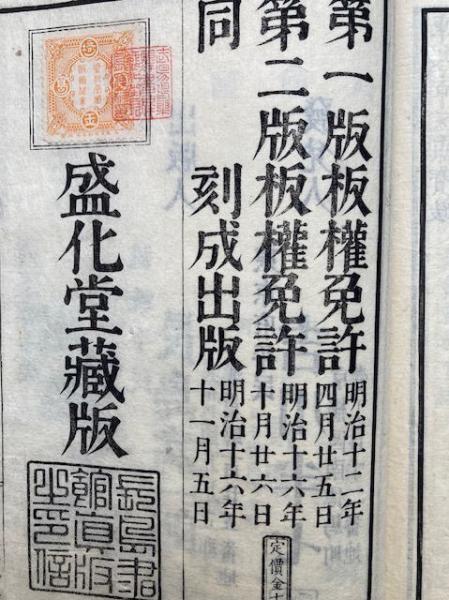 第一版板權免許明治十二年四月廿五日
第二版板權免許明治十六年十月廿六日
同　刻成出版明治十六年十一月五日
定價金
盛化堂藏版